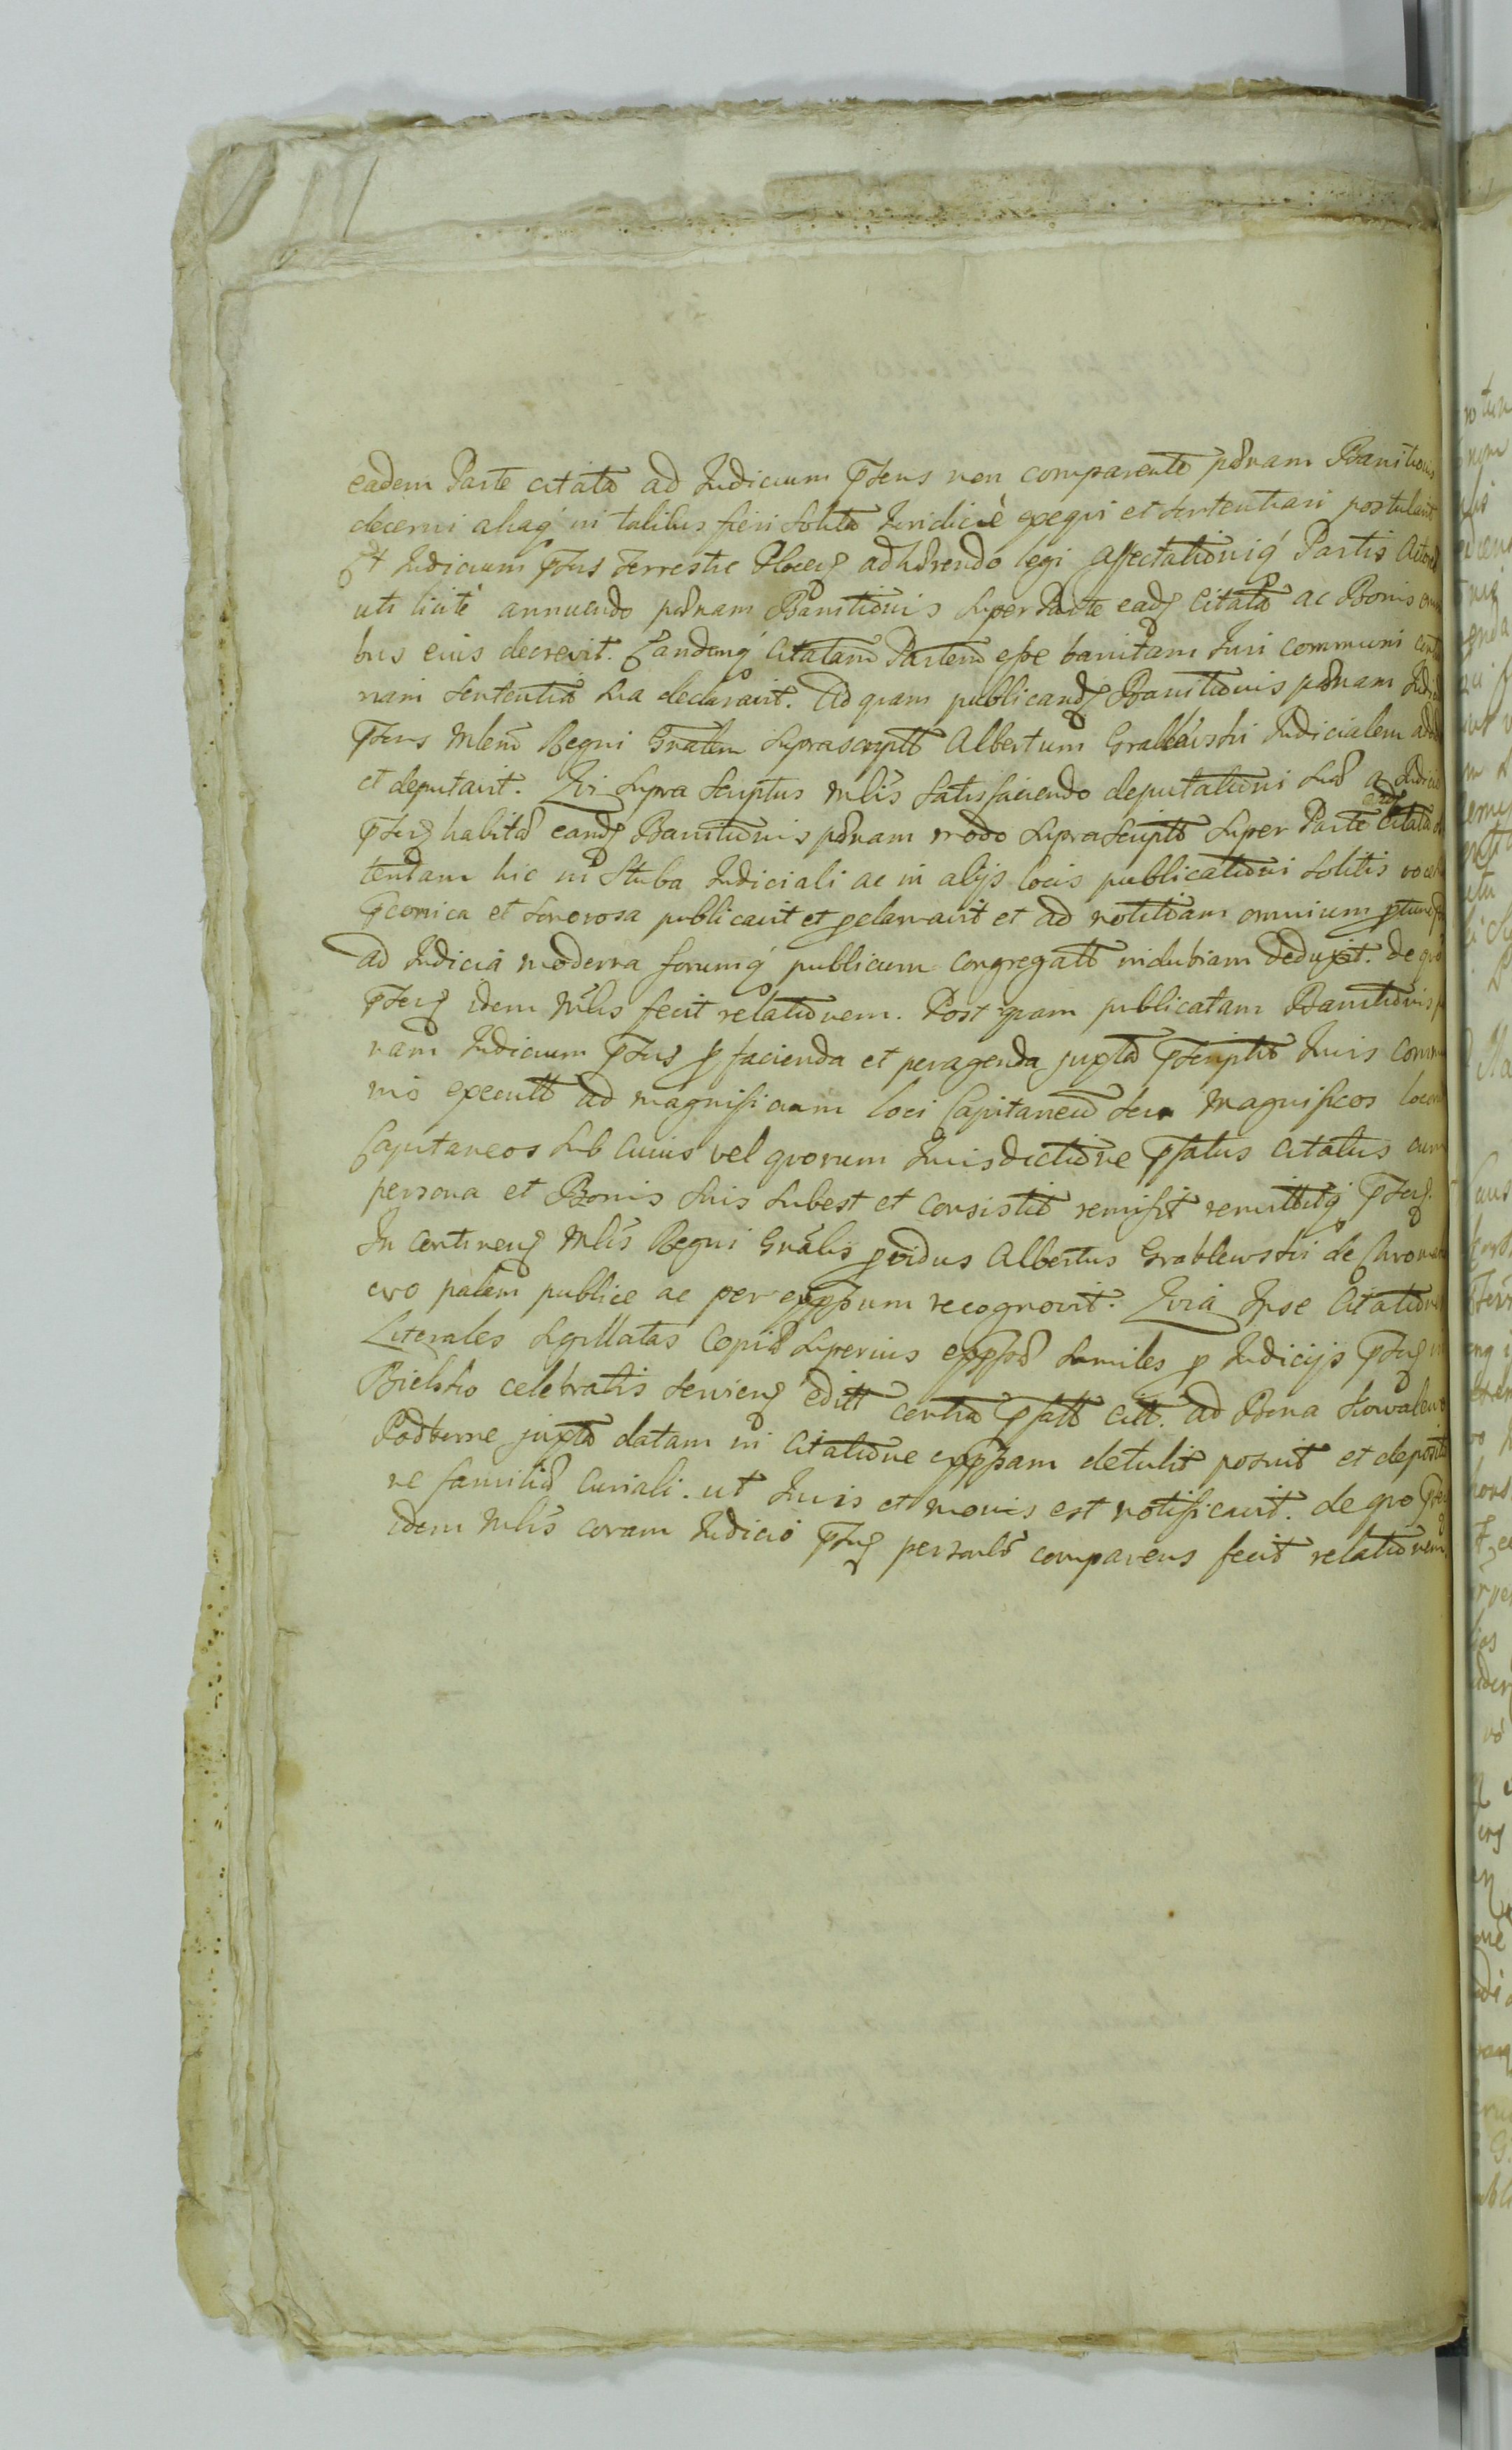 eadem Parte citata ad Judicium pñs non comparente pœnam Banitionis
decerni aliaq́ in talibus fieri solita Juridicè exequi et sententiari postulavit
Et Judicium pñs Terrestre Plocen adhærendo legi affectationiq́ Partis Actoreæ
uti licitè annuendo pœnam Banitionis super Parte ead citata ac Bonis
bus eius decrevit. Eandemq́ citatam Partem esse banitam Juri communi
nam sententia sua declaravit. Ad quam publicand Banitionis pœnam
pñs Mlem Regni Gnalem suprascriptt Albertum Grablewski Judicialem
et deputavit. Qui supra scriptus Mlis satisfaciendo deputationi suæ a Judicio
pñti habitæ eand Banitionis pœnam modo suprascripto super Parte ead citata
tentam hic in Stuba Judiciali ac in alijs locis publicationi solitis
præconica et sonorosa publicavit et proclamavit et ad notitiam omnium
ad Judicia moderna forumq́ publicum congregatt indubiam deduxit. de quo
pñti idem Mlis fecit relationem. Post quam publicatam Banitionis
nam Judicium pñs pro facienda et peragenda juxta pscripta Juris
mo executt ad magnificum loci Capitaneum seu Magnificos
Capitaneos sub cuius vel quorum Jurisdictione pfatus citatus cum
persona et Bonis suis subest et consistit remisit remittitq́ pñti
In continen Mlis Regni Gnalis pvidus Albertus Grablewski de
evo palam publice ac per expssum recognovit. Quia Ipse Citationes
Literales sigillatas Copiæ superius expssæ similes pro Judicijs pñti
Bielsko celebratis servien editt contra pfatt citt. ad Bona Kowalewo
Podborne juxta datam in Citatione expssam detulit posuit et
re familiæ curiali. ut Juris et moris est notificavit. de quo
idem Mlis coram Judicio pñti personlr comparens fecit relationem.